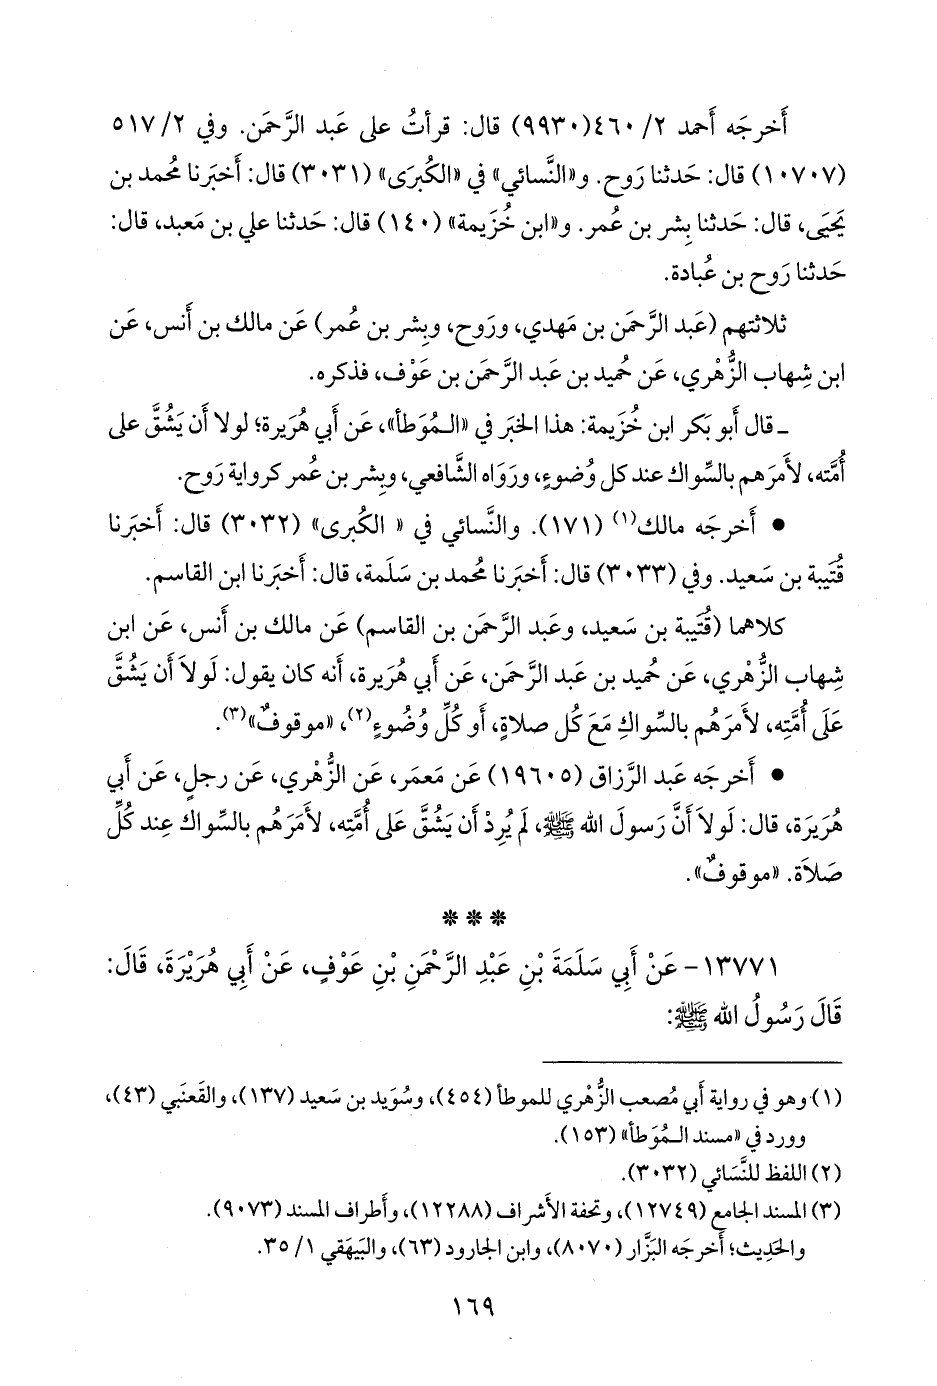 أَخرجَه أَحمد ٢/ ٤٦٠(٩٩٣٠) قال: قرأتُ على عَبد الرَّحمَن. وفي ٢/ ٥١٧
(١٠٧٠٧) قال: حَدثنا رَوح. و«النَّسائي» في «الكُبرَى» (٣٠٣١) قال: أَخبَرنا مُحمد بن
يَحيَى، قال: حَدثنا بِشر بن عُمر. و«ابن خُزَيمة» (١٤٠) قال: حَدثنا علي بن مَعبد، قال:
حَدثنا رَوح بن عُبادة.
ثلاثتهم (عَبد الرَّحمَن بن مَهدي، ورَوح، وبِشر بن عُمر) عَن مالك بن أَنس، عَن
ابن شِهاب الزُّهْري، عَن حُميد بن عَبد الرَّحمَن بن عَوْف، فذكره.
ـ قال أَبو بَكر ابن خُزَيمة: هذا الخبَر في «الـمُوَطأ»، عَن أَبي هُرَيرة؛ لولا أَن يَشُقَّ على
أُمَّته، لأَمرَهم بالسِّواك عند كل وُضوءٍ، ورَوَاه الشَّافعي، وبِشر بن عُمر كرواية رَوح.
• أَخرجَه مالك(١) (١٧١). والنَّسائي في « الكُبرى» (٣٠٣٢) قال: أَخبَرنا
قُتَيبة بن سَعيد. وفي (٣٠٣٣) قال: أَخبَرنا مُحمد بن سَلَمة، قال: أَخبَرنا ابن القاسم.
كلاهما (قُتَيبة بن سَعيد، وعَبد الرَّحمَن بن القاسم) عَن مالك بن أَنس، عَن ابن
شِهاب الزُّهْري، عَن حُميد بن عَبد الرَّحمَن، عَن أَبي هُرَيرة، أَنه كان يقول: لَولاَ أَن يَشُقَّ
عَلَى أُمَّتِه، لأَمرَهُم بالسِّواكِ مَعَ كُل صلاةٍ، أَو كُلِّ وُضُوءٍ(٢)، «موقوفٌ»(٣).
• أَخرجَه عَبد الرَّزاق (١٩٦٠٥) عَن مَعمَر، عَن الزُّهْري، عَن رجلٍ، عَن أَبي
هُرَيرَة، قال: لَولاَ أَنَّ رَسولَ الله ﷺ، لَم يُرِدْ أَن يَشُقَّ عَلى أُمَّتِه، لأَمَرَهُم بالسِّواك عِند كُلِّ
صَلاَة. «موقوفٌ».
* * *
١٣٧٧١- عَنْ أَبِي سَلَمَةَ بْنِ عَبْدِ الرَّحْمَنِ بْنِ عَوْفٍ، عَنْ أَبِي هُرَيْرَةَ، قَالَ:
قَالَ رَسُولُ الله ﷺ:
(١) وهو في رواية أَبي مُصعب الزُّهْري للموطأ (٤٥٤)، وسُوَيد بن سَعيد (١٣٧)، والقَعنَبي (٤٣)،
وورد في «مسند الـمُوَطأ» (١٥٣).
(٢) اللفظ للنَّسَائي (٣٠٣٢).
(٣) المسند الجامع (١٢٧٤٩)، وتحفة الأشراف (١٢٢٨٨)، وأَطراف المسند (٩٠٧٣).
والحَدِيث؛ أَخرجَه البَزَّار (٨٠٧٠)، وابن الجارود (٦٣)، والبَيهَقي ١/ ٣٥.
١٦٩